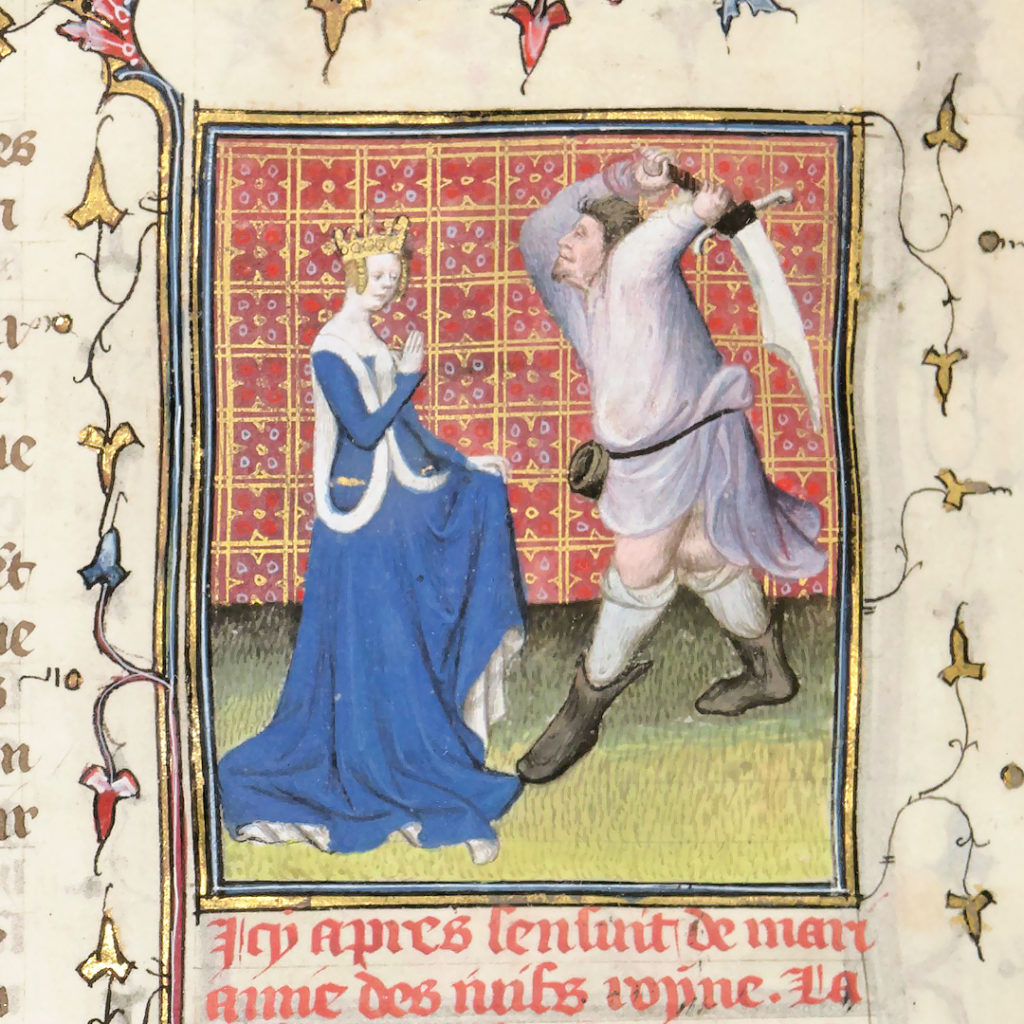 es
n
e
ue
Et
ue
s
n
ur
Icy apres sensuit de mari
amie des iuifs royne. La